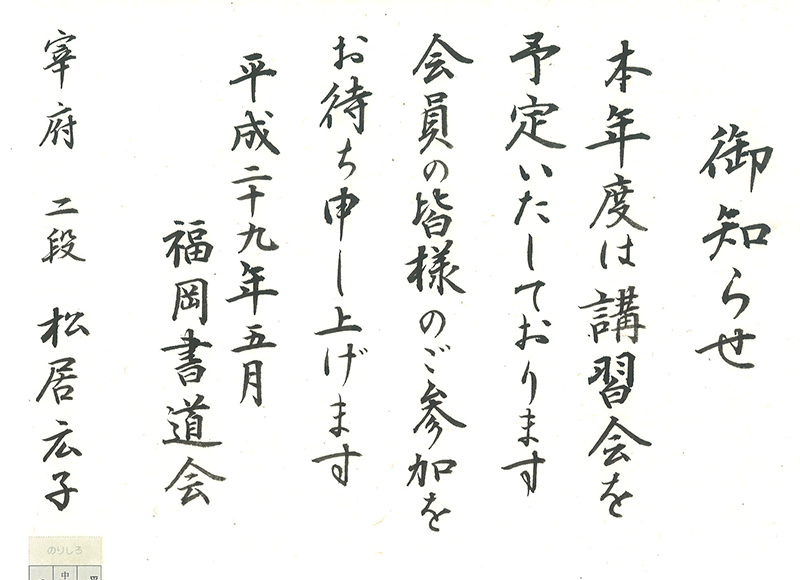 御知らせ
本年度は講習会を
予定いたしております
会員の皆様のご参加を
お待ち申し上げます
平成二十九年五月
福岡書道会
宰府 二段 松居広子
のりしろ
中